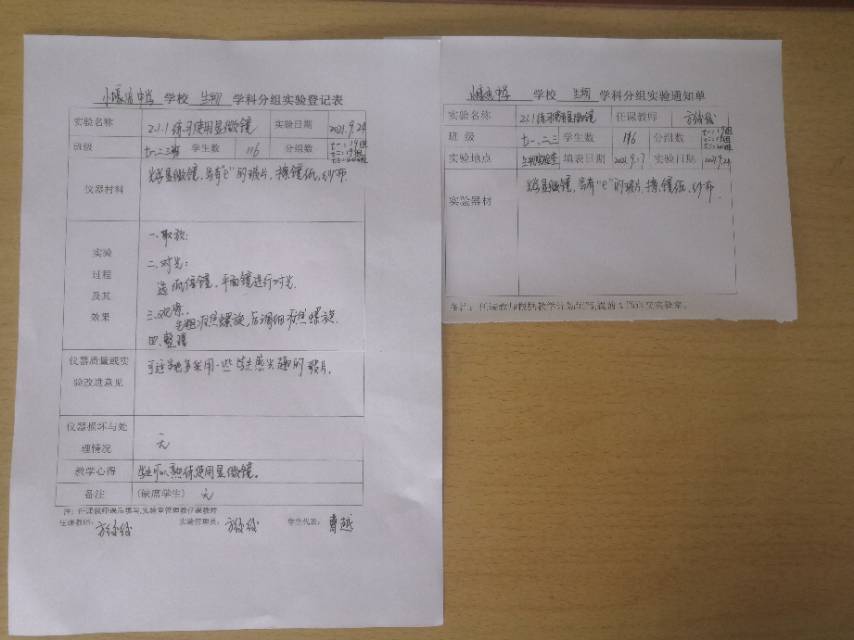 学校 生物 学科分组实验登记表
实验名称 2.1.1 练习使用显微镜 实验日期 2021.9.24
班级 七一、二、三班 学生数 116 分组数
仪器材料 光学显微镜，写有“e”的玻片，擦镜纸，纱布
实验过程及其效果 一、取放：
二、对光：
选低倍镜，平面镜进行对光.
三、观察：
先粗准焦螺旋，后调细准焦螺旋.
四、整理
仪器质量或实验改进意见 可适当地多采用一些学生感兴趣的玻片.
仪器损坏与处理情况 无
教学心得 学生可以熟练使用显微镜.
备注 (缺席学生) 无
注：任课教师课后填写，实验室管理员
任课教师： 实验管理员： 学生代表： 曹越
学校 生物 学科分组实验通知单
实验名称 2.1.1 练习使用显微镜 任课教师
班 级 七一、二、三 学生数 116 分组数
实验地点 生物实验室 填表日期 2021.9.17 实验日期 2021.9.24
实验器材 光学显微镜，写有“e”的玻片，擦镜纸，纱布.
备注：任课教师根据教学计划